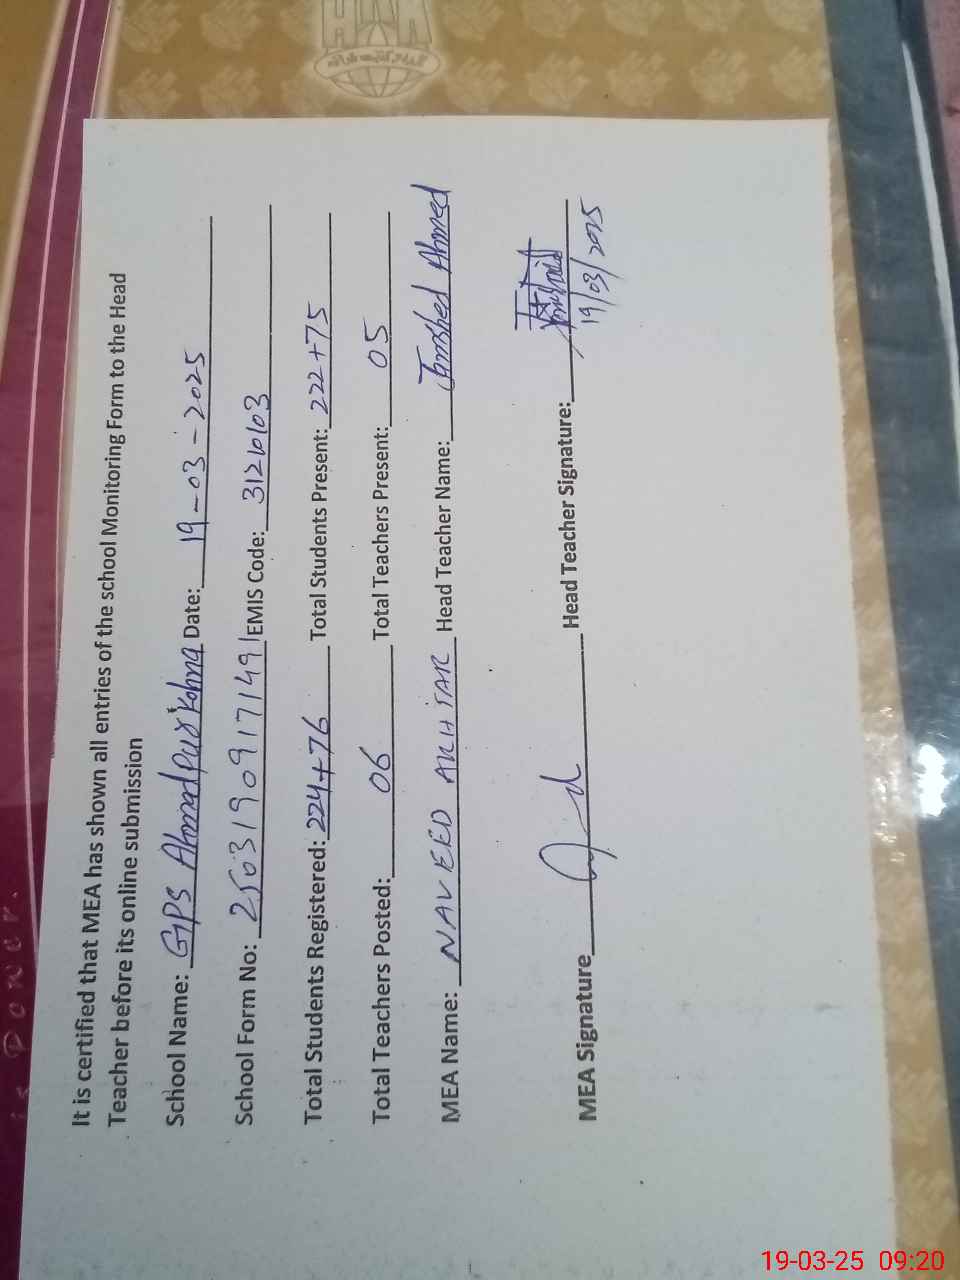 It is certified that MEA has shown all entries of the school Monitoring Form to the Head
Teacher before its online submission
School Name: GPS Ahmadpur Kohna Date: 19-03-2025
School Form No: 250319091711491 EMIS Code: 31210103
Total Students Registered: 224+76 Total Students Present: 222+75
Total Teachers Posted: 06 Total Teachers Present: 05
MEA Name: NAVEED AKHTAR Head Teacher Name: Jamshed Ahmed
MEA Signature Head Teacher Signature:
19/03/2025
is Power.
19-03-25 09:20